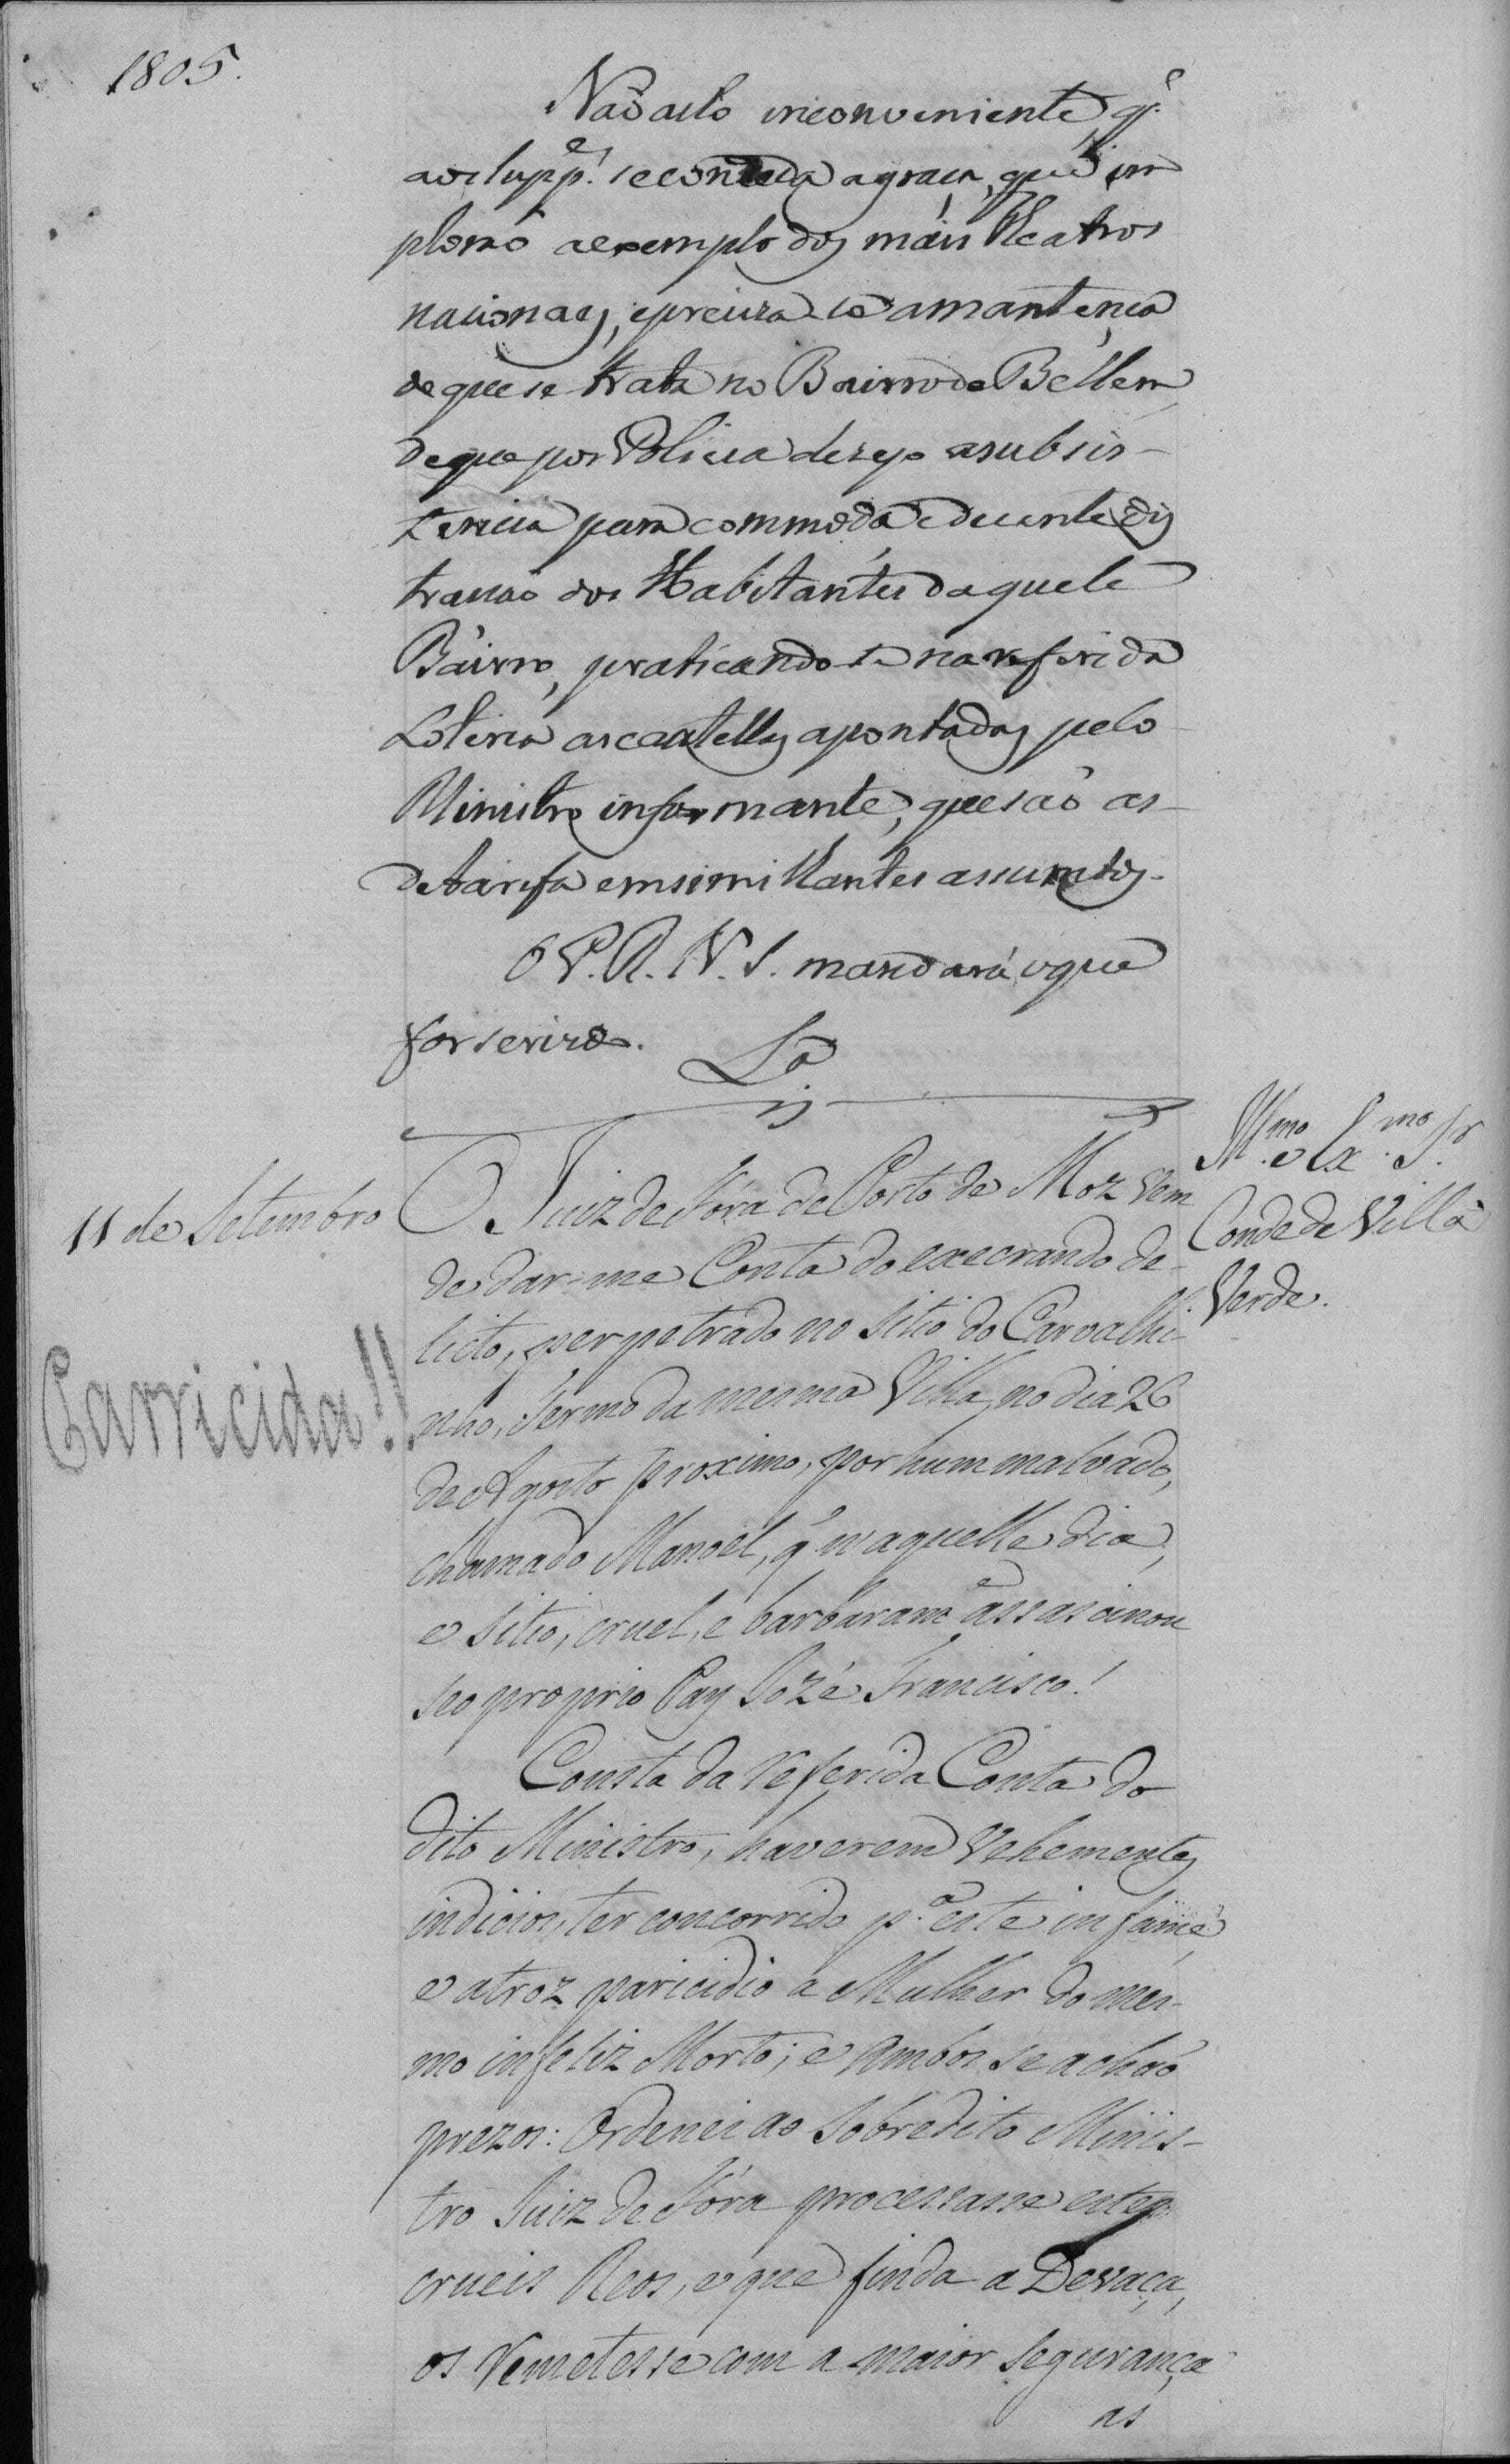 1805.
Não acho inconveniente, q̃.
aos Supp.es se conceda a graça, que im
plorão a exemplo dos máis Theatros
nacionaes, e preciza se a mantença
de que se trata no Bairro de Bellem,
de que por Policia dezejo a subsis-
tencia para commoda e decente dis
tração dos Habitantes daquele
Báirro, praticando-se na referida
Loteria as cautellas apontadas pelo
Ministro informante, que são as
da tarifa em simithantes assumptos.
O P. R. N. S. mandará o que
for servido.
11 de Setembro
O Juiz de Fóra de Porto de Moz vem
de dar-me Conta do execrando de-
licto, perpetrado no sitio do Carvalhi-
nho, termo da mesma Villa, no dia 26
de Agosto proximo, por hum malvado,
chamado Manoel, q̃ n'aquelle dia,
e sitio, cruel, e barbaram.e assasinou
seo proprio Pay Jozé Francisco!
Consta da referida Conta do
dito Ministro, haverem vehementes
indicios, ter concorrido p.a este infame,
e atroz paricidio a Mulher do mes-
mo infeliz Morto; e ambos se achão
prezos: Ordenei ao sobredito Minis-
tro Juiz de Fóra processasse estes
crueis Reos, e que finda a Devaça,
os remetesse com a maior segurança
as
Ill.mo e Ex.mo Sr.
Conde de Villa
Verde.
Parricida!!